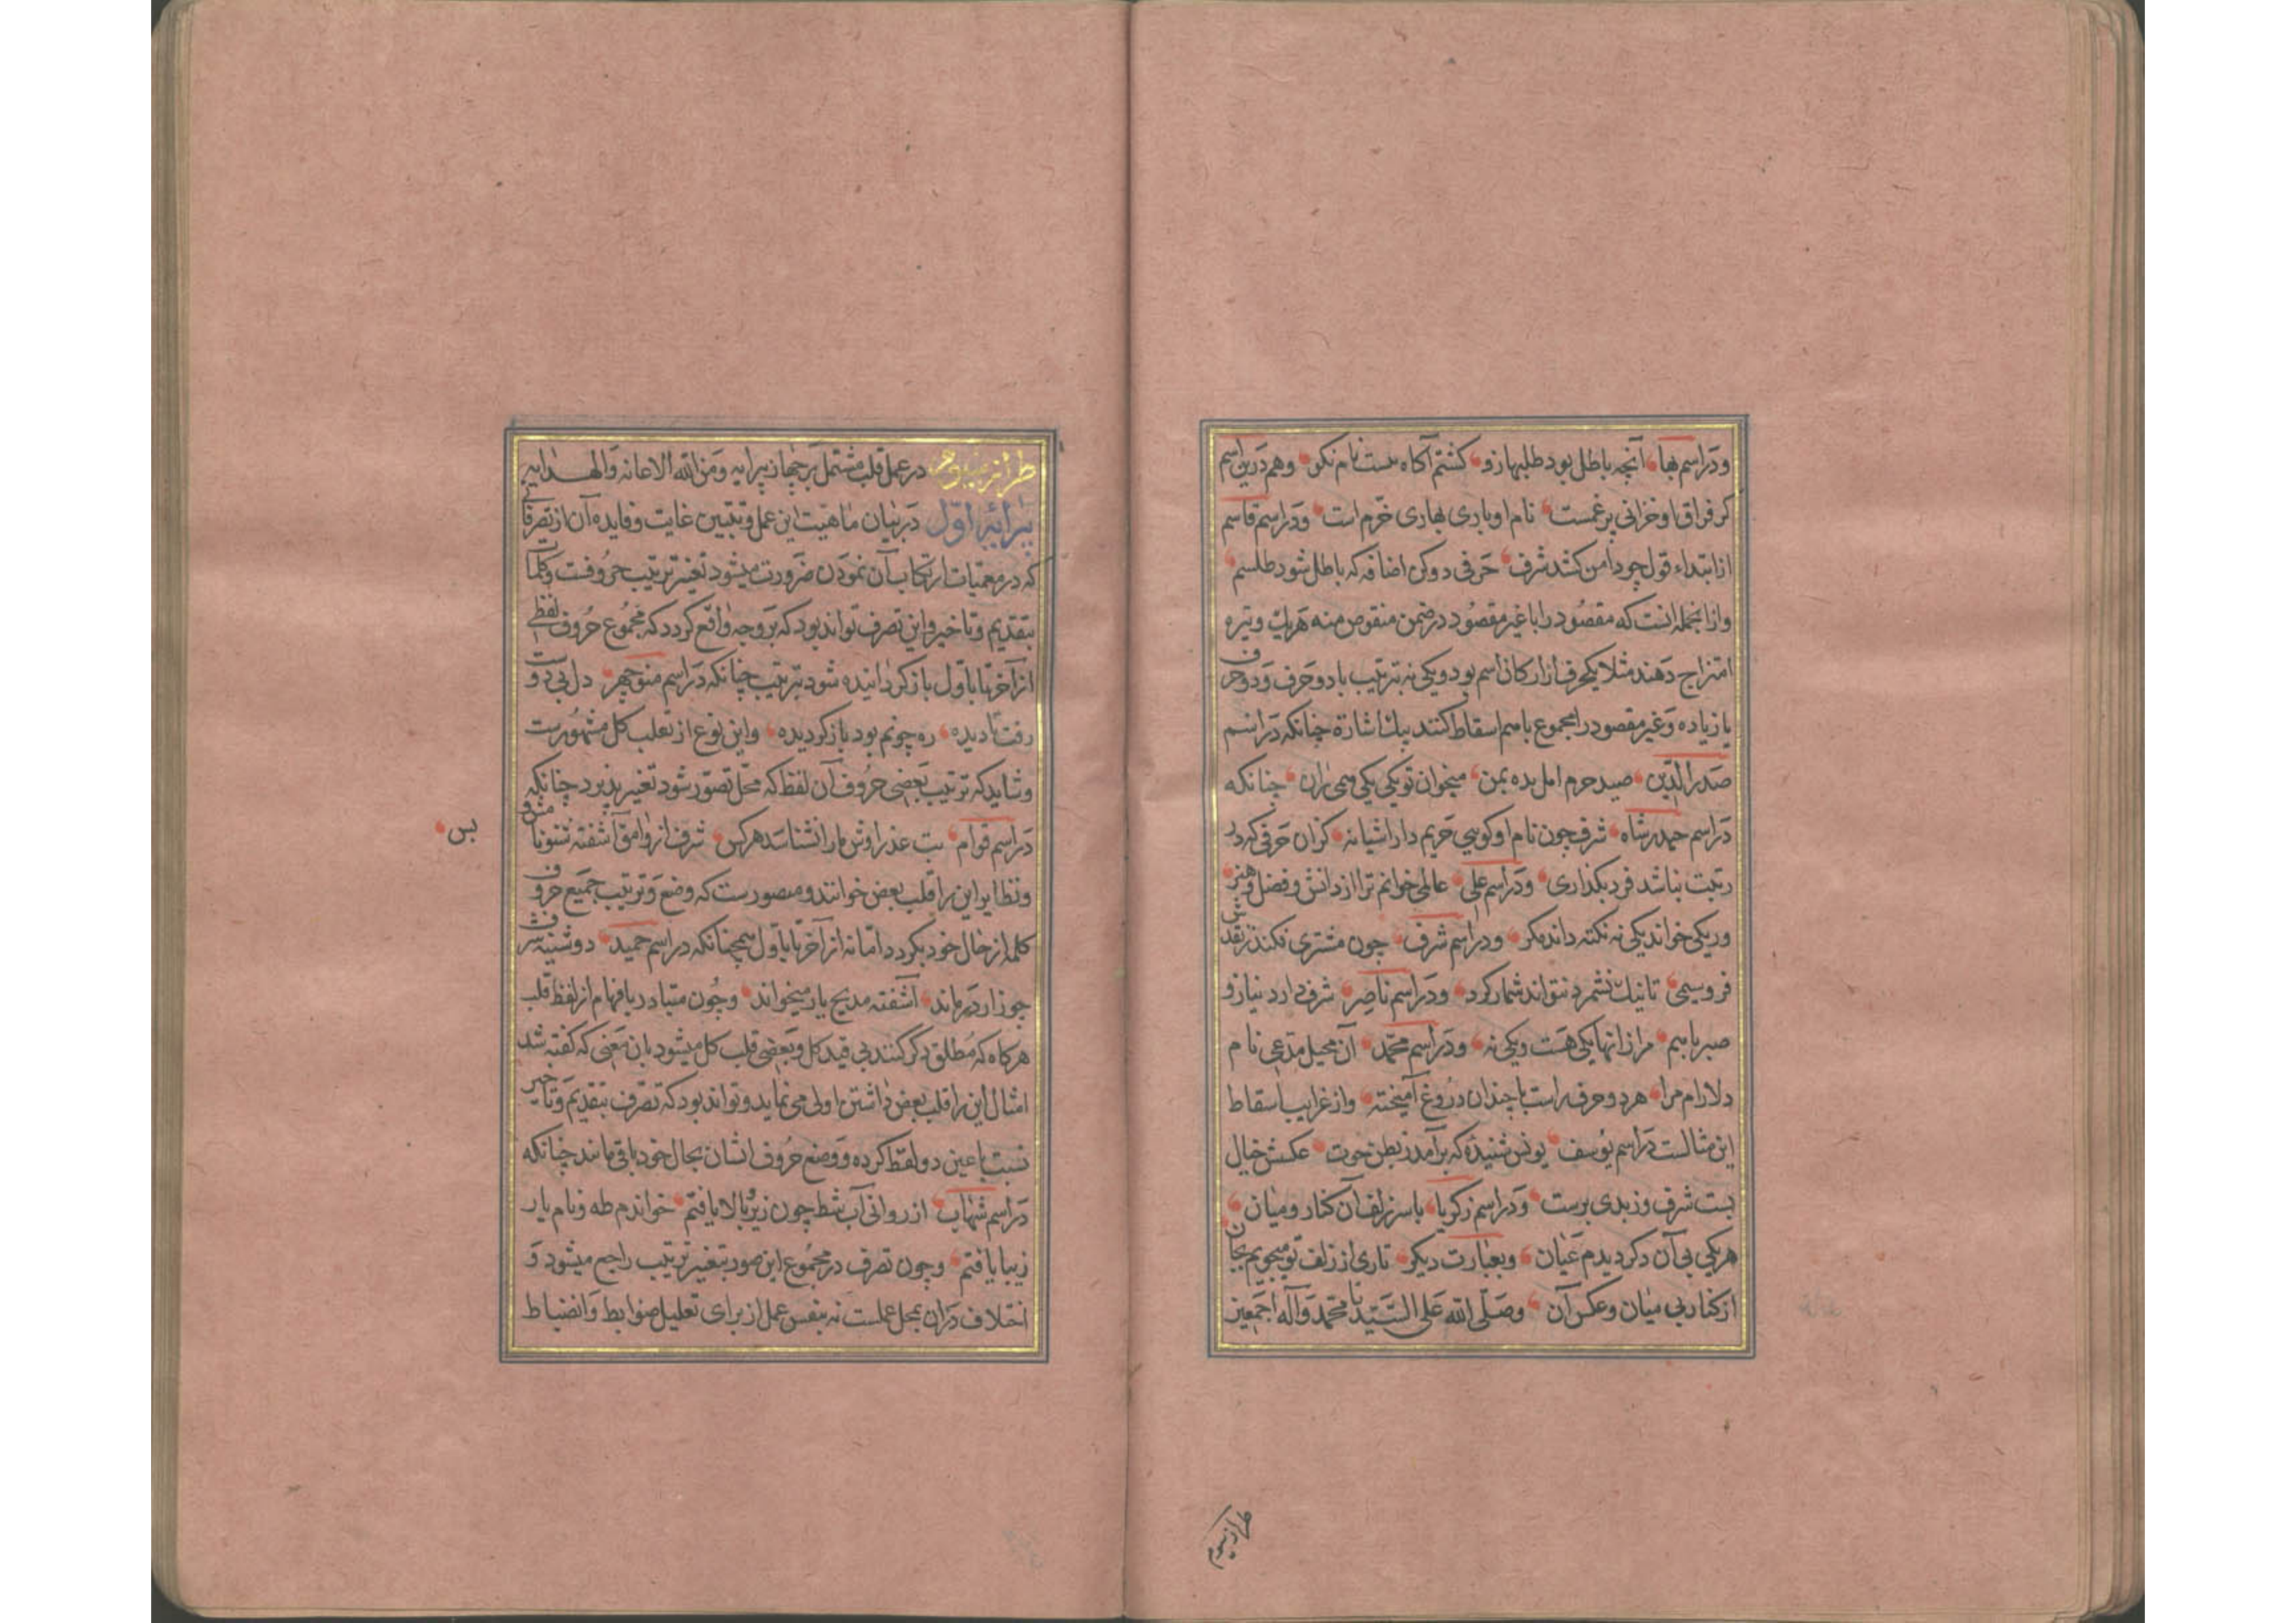 ودر اسم بها آنچه باطل بود طلبها زو کشتم آکاه هست نام نکن وهم درین اسم
کز فراق او خزانی پرغمست نام او با دی بهاری خرم است ودر اسم قاسم
از ابتداء قول چو دامن کشد شرف حرفی دو کن اضافه که باطل شود طلسم
وازانجمله انست که مقصود را با غیر مقصود در ضمن منقوص منه هریک وتیره
امتزاج دهند مثلا یکحرف از ارکان اسم بود ویکی نه بترتیب یا دو حرف ودو حرف
یا زیاده وغیر مقصود را مجموع باسم اسقاط کنند بیک اشارة چنانکه در اسم
صدر الدین صید حرم امل بده بمن میخوان تو یکی یکی ومی ران چنانکه
در اسم حیدرشاه شرف چون نام او کوسی حریم دار اشیانه کزان حرفی که در
ربتت نباشد فرد بکذاری ودر اسم علی عالمی خوانم ترا از دانش وفضل وهنر
وریکی خواند یکی نه نکته داند مکر ودر اسم شرف چون مشتری نکند ز نقدش
فرو سیمی تا نیک نشمرد نتواند شمار کرد ودر اسم ناصر شرف دارد نیاز و
صبر باهم مراز انها یکی هست ویکی نه ودر اسم محمد آن محیل مدعی نام
دلارام مرا هر دو حرف راست با چندان دروغ آمیخته واز غرایب اسقاط
این مثالست در اسم یوسف یونس شنیدۀ که برآمد ز بطن حوت عکسش خیال
بست شرف وز بدی برست ودر اسم زکریا با سر زلف آن کنار ومیان
هر یکی بی آن دکر دیدم عیان وبعبارت دیکر تاری از زلف تو میجویم بجان
از کنار بی میان وعکس آن وصلی الله علی السید نا محمد وآله اجمعین
طراز سیوم
طراز سیوم در عمل قلب مشتمل بر چهار پیرایه ومن الله الاعانه والهدایه
پیرایۀ اول در بیان ماهیت این عمل وتبیین غایت وفایده آن از تصرفاتی
که در معمیات ارتکاب آن نمودن ضرورت میشود تغییر ترتیب حروفست وکلمات
بتقدیم وتاخیر واین تصرف تواند بود که بر وجه واقع کردد که مجموع حروف لفظ
از آخر تا باول باز کردانیده شود بترتیب چنانکه در اسم منوچهر دل بی دوست
رفت نادیده ره چونم بود باز کردیده واین نوع از تقلب کل مشهورست
وشاید که ترتیب بعضی حروف آن لفظ که محل تصور شود تغییر پذیرد چنانکه
در اسم قوام بت عذراوش مارا نشناسد هرکس شرف از وامق آشفته شنو نام
بس
ونظایر این را قلب بعض خوانند ومتصور ست که وضع وترتیب جمیع حروف
کلمه از حال خود بکردد اما نه از آخر تا باول همچنانکه در اسم حمید دوشینه شرف
چو زار درماند آشفته مدیح یار میخواند وچون متبادر بافهام از لفظ قلب
هرکاه که مطلق ذکر کنند بی قید کل وبعضی قلب کل میشود بان معنی که کفته شد
امثال این را قلب بعض داشتن اولی می نماید وتواند بود که تصرف بتقدیم وتاخیر
نسبت با عین دو لفظ کرده ووضع حروف ایشان بحال خود باقی مانند چنانکه
در اسم شهاب از روانی آب شط چون زیر وبالا یافتم خواندم طه ونام یار
زیبا یافتم وچون تصرف در مجموع این صور بتغییر ترتیب راجع میشود و
اختلاف دران بمحل عملست نه بنفس عمل از برای تعلیل ضوابط وانضباط